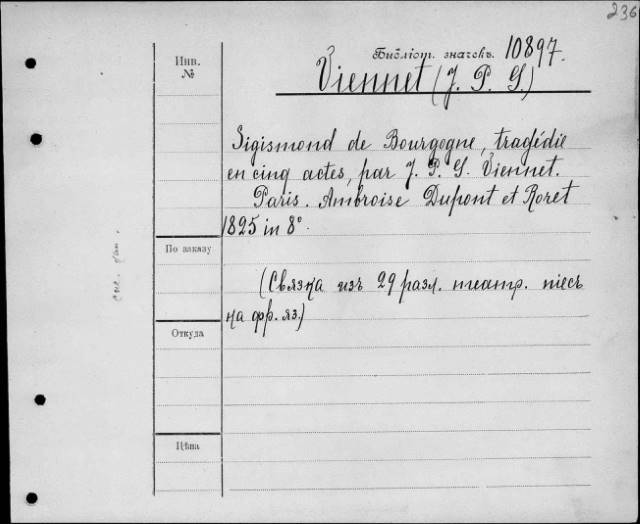 236
Инв.
№
Библіот. значекъ. 10897.
Viennet (J. P. G.)
Sigismond de Bourgogne, tragédie
en cinq actes, par J. P. G. Viennet.
Paris. Ambroise Dupont et Roret
1825 in 8°.
По заказу
(Связка изъ 29 разл. театр. піесъ
на фр. яз.)
Откуда
Цѣна